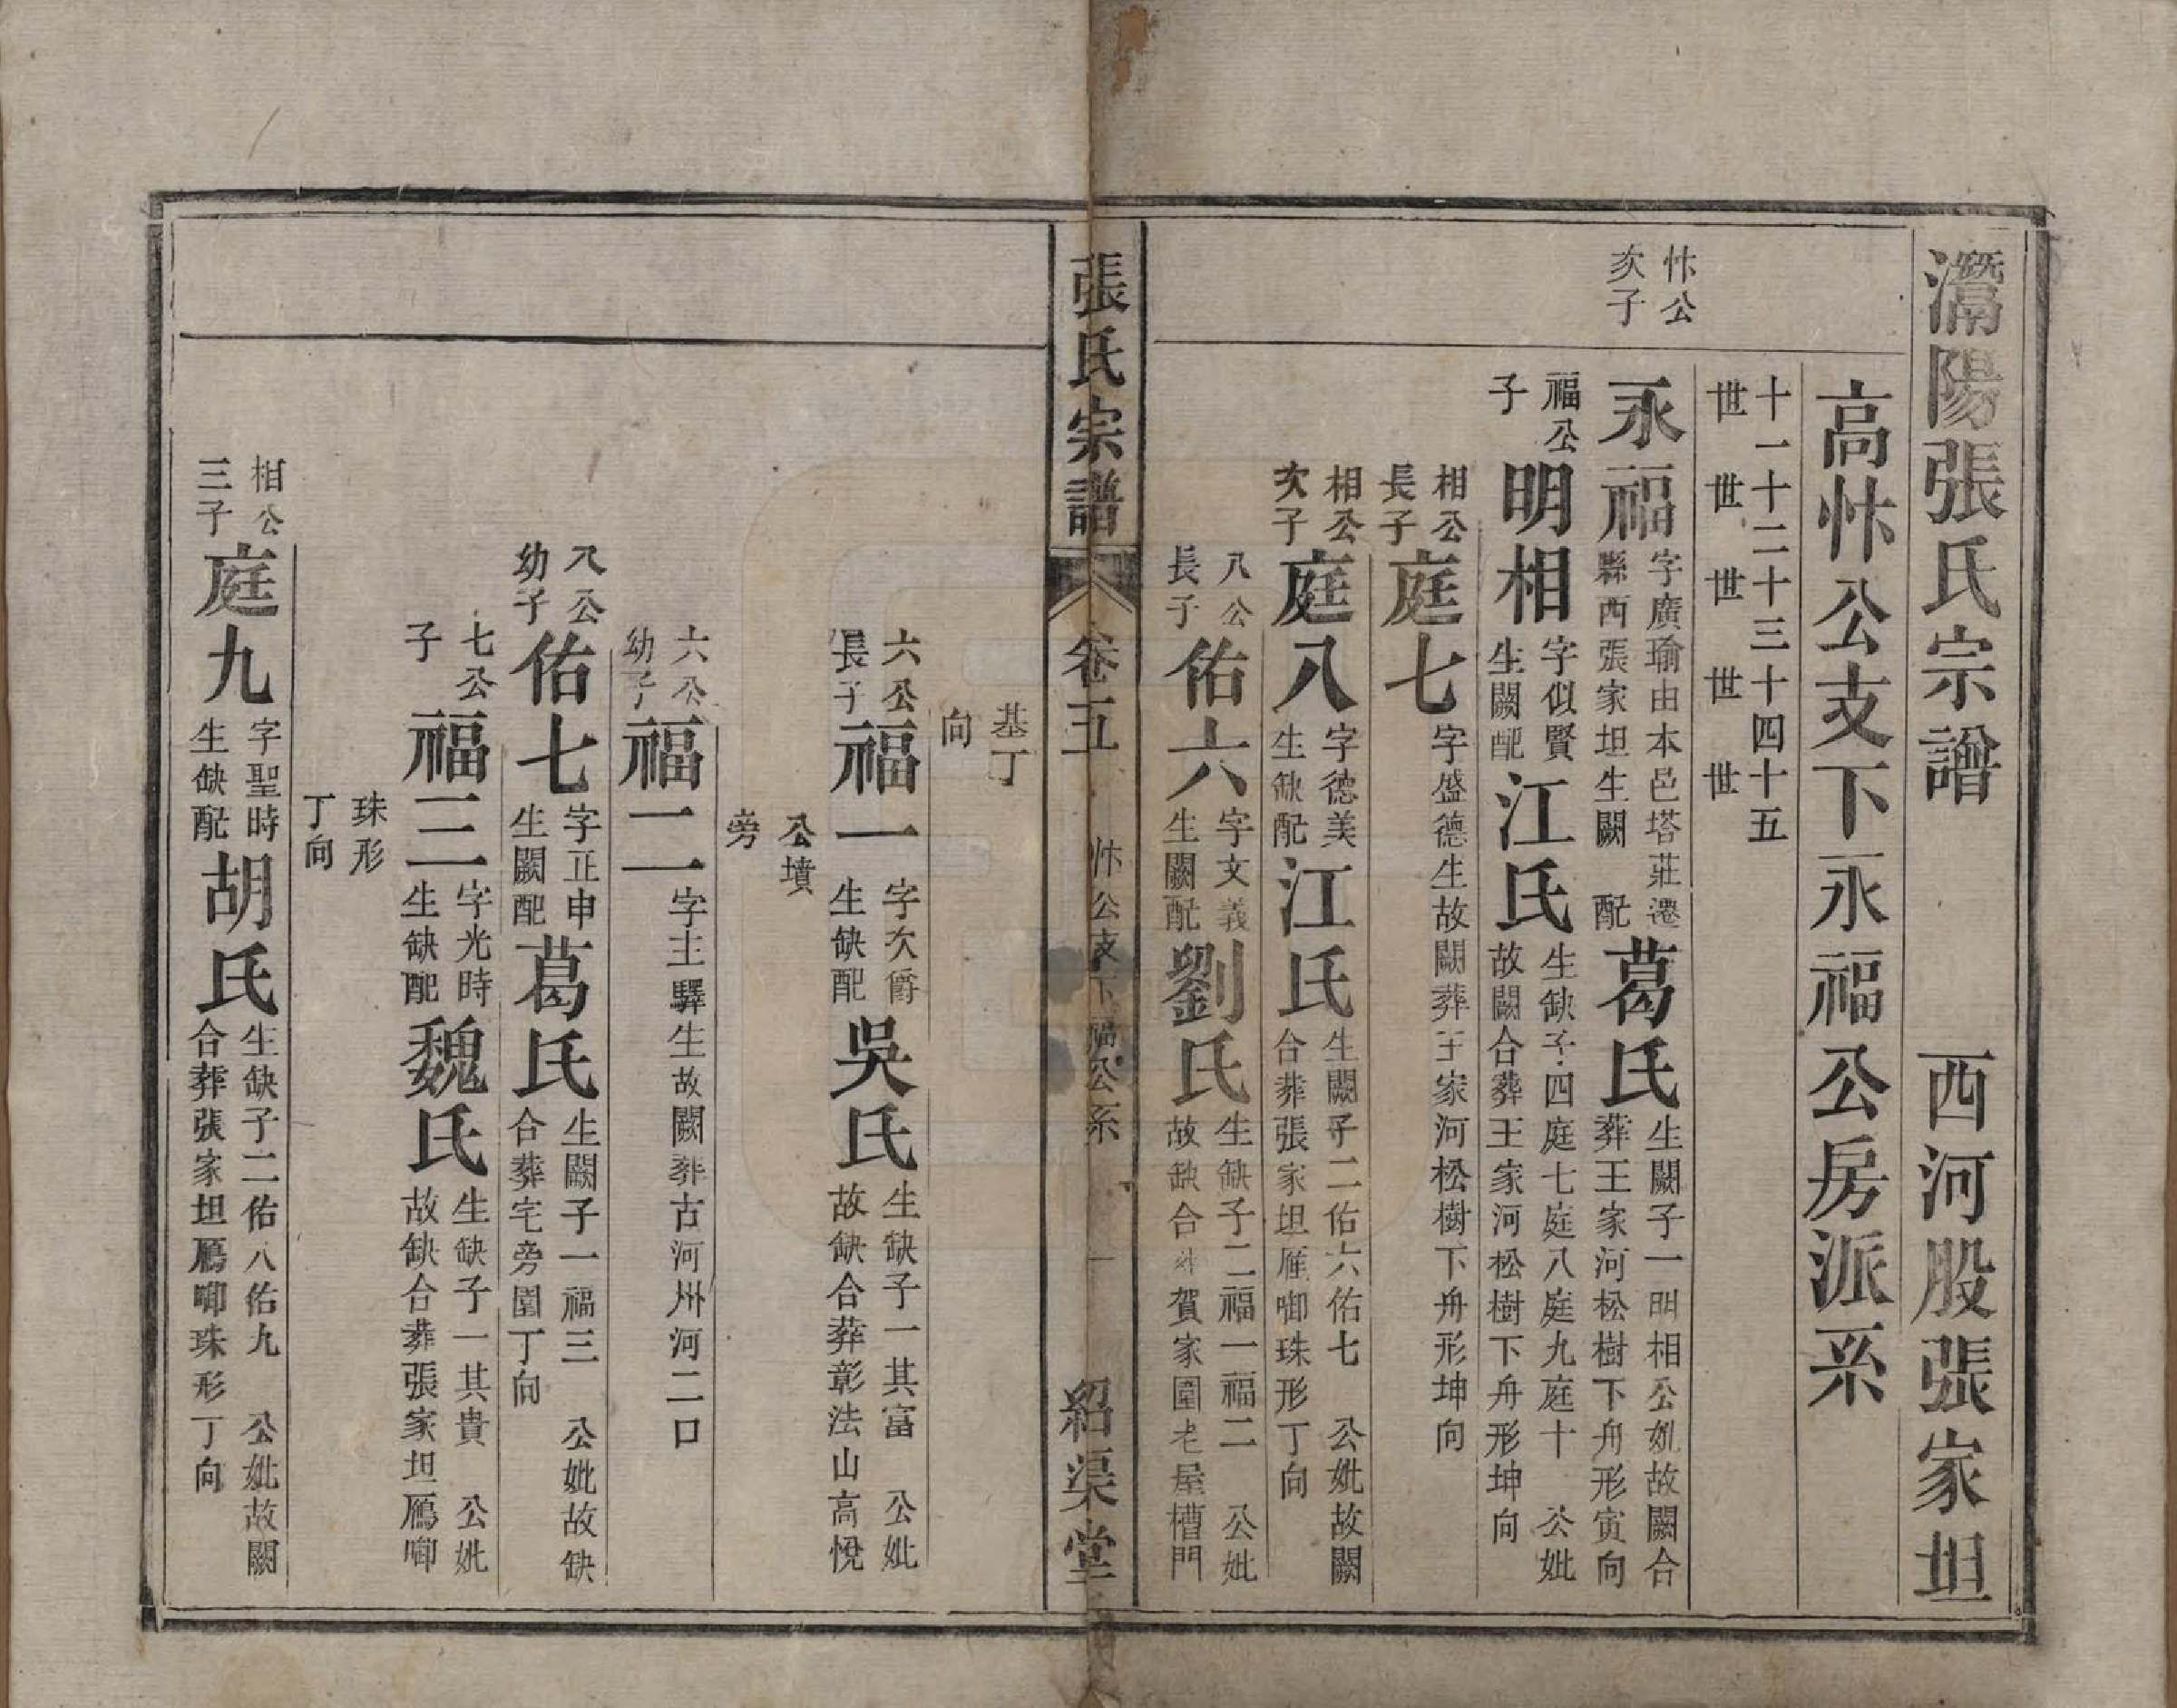 灊陽張氏宗譜　西河股張家坦
高忭公支下永福公房派系
十一十二十三十四十五
世　世　世　世　世
忭公
次子
永福
字廣瑜由本邑塔莊遷
縣西張家坦生闕　配
葛氏
生闕子一明相公妣故闕合
葬王家河松樹下舟形寅向
福公
子
明相
字似賢
生闕配
江氏
生缺子四庭七庭八庭九庭十　公妣
故闕合葬王家河松樹下舟形坤向
相公
長子
庭七
字盛德生故闕葬王家河松樹下舟形坤向
相公
次子
庭八
字德美
生缺配
江氏
生闕子二佑六佑七　公妣故闕
合葬張家坦雁啣珠形丁向
八公
長子
佑六
字文義
生闕配
劉氏
生缺子二福一福二　公妣
故缺合葬賀家圍老屋槽門
張氏宗譜　卷五　忭公支下福公系　一　紹渠堂
基丁
向
六公
長子
福一
字次爵
生缺配
吳氏
生缺子一其富　公妣
故缺合葬彰法山高悅
公墳
旁
六公
幼子
福二
字主驛生故闕葬古河州河二口
八公
幼子
佑七
字正申
生闕配
葛氏
生闕子一福三　公妣故缺
合葬宅旁園丁向
七公
子
福三
字光時
生缺配
魏氏
生缺子一其貴　公妣
故缺合葬張家坦鴈啣
珠形
丁向
相公
三子
庭九
字聖時
生缺配
胡氏
生缺子二佑八佑九　公妣故闕
合葬張家坦鴈啣珠形丁向